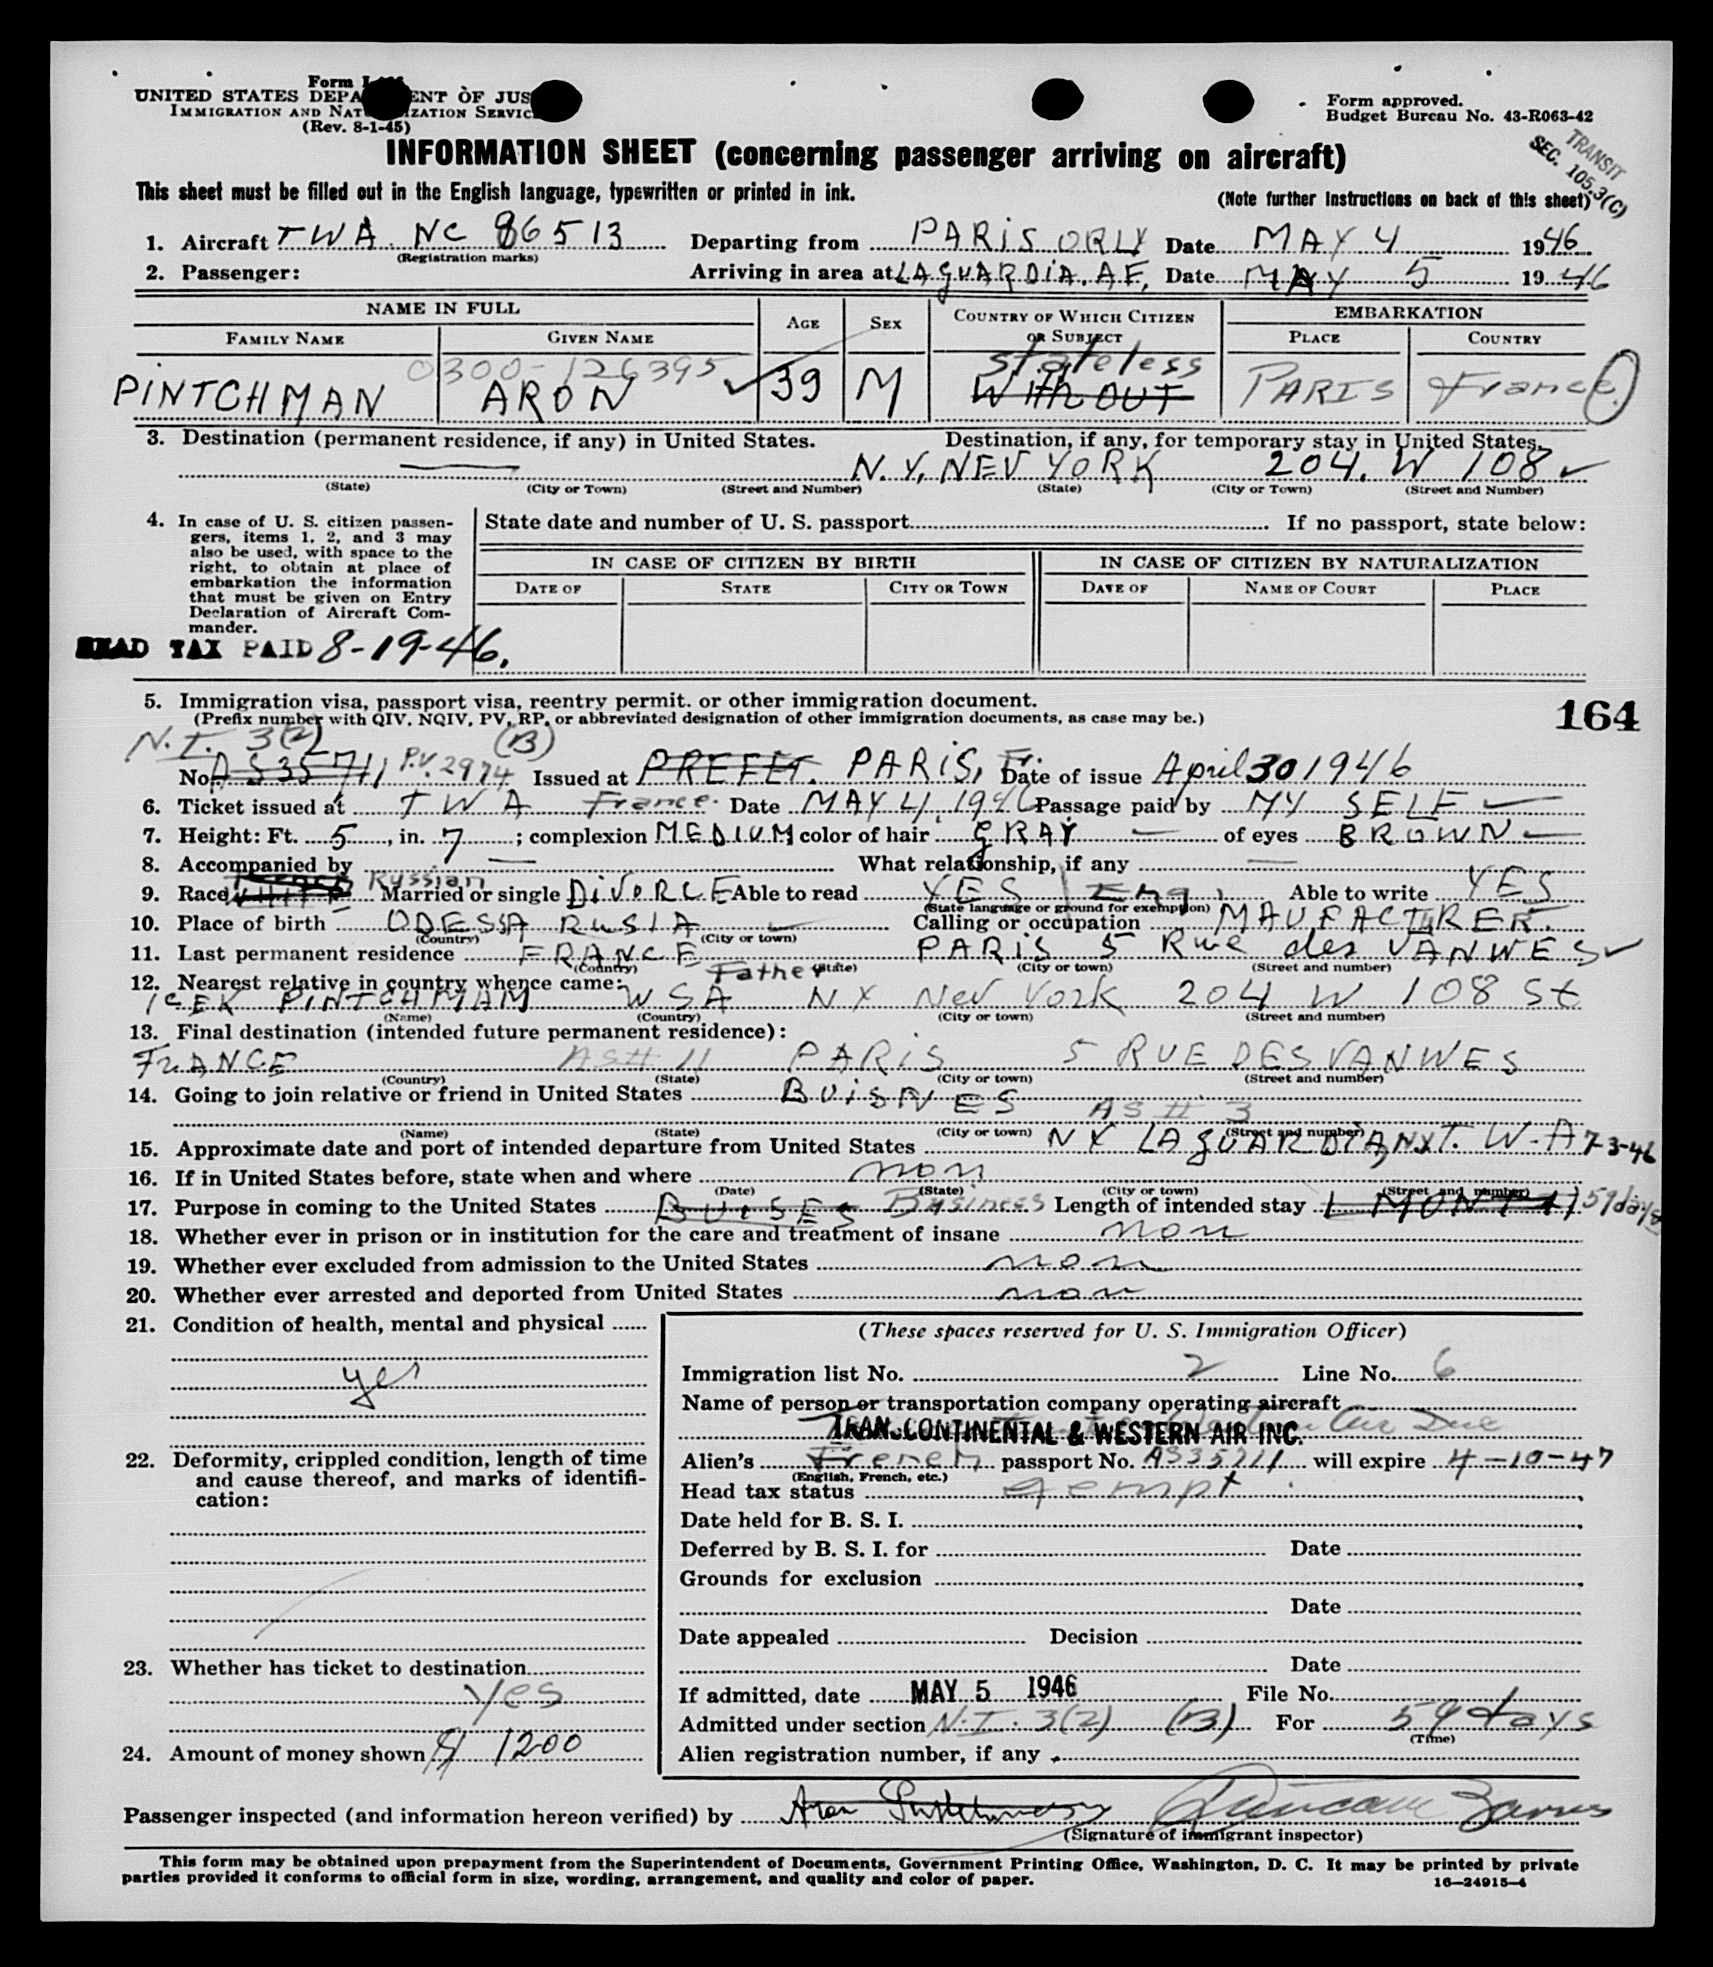 Form I-
UNITED STATES DEPA ENT OF JUS
IMMIGRATION AND NAT IZATION SERVIC
(Rev. 8-1-45)
Form approved.
Budget Bureau No. 43-R063-42
TRANSIT
SEC. 105.3(C)
INFORMATION SHEET (concerning passenger arriving on aircraft)
This sheet must be filled out in the English language, typewritten or printed in ink.
(Note further instructions on back of this sheet)
1. Aircraft TWA. NC 86513 Departing from PARIS ORLY Date MAY 4 1946
(Registration marks)
2. Passenger: Arriving in area at LAGUARDIA. AF, Date MAY 5 1946
NAME IN FULL AGE SEX COUNTRY OF WHICH CITIZEN OR SUBJECT EMBARKATION
FAMILY NAME GIVEN NAME PLACE COUNTRY
0300-126395 stateless
PINTCHMAN ARON ✓ 39 M WITHOUT PARIS France
3. Destination (permanent residence, if any) in United States. Destination, if any, for temporary stay in United States.
N.Y. NEV YORK 204. W 108 ✓
(State) (City or Town) (Street and Number) (State) (City or Town) (Street and Number)
4. In case of U. S. citizen passen-
gers, items 1, 2, and 3 may
also be used, with space to the
right, to obtain at place of
embarkation the information
that must be given on Entry
Declaration of Aircraft Com-
mander.
State date and number of U. S. passport If no passport, state below:
IN CASE OF CITIZEN BY BIRTH IN CASE OF CITIZEN BY NATURALIZATION
DATE OF STATE CITY OR TOWN DATE OF NAME OF COURT PLACE
HEAD TAX PAID 8-19-46.
5. Immigration visa, passport visa, reentry permit. or other immigration document.
(Prefix number with QIV, NQIV, PV, RP, or abbreviated designation of other immigration documents, as case may be.)
164
N.I. 3(2) (B)
No. AS35711 P.V. 2974 Issued at PREFET. PARIS, Fr. Date of issue April 30 1946
6. Ticket issued at TWA France. Date MAY 4, 1946 Passage paid by MY SELF
7. Height: Ft. 5, in. 7; complexion MEDIUM color of hair GRAY of eyes BROWN
8. Accompanied by What relationship, if any
9. Race WHITE Russian Married or single DIVORCE Able to read YES Eng. Able to write YES
(State language or ground for exemption)
10. Place of birth ODESSA RUSIA Calling or occupation MAUFACTURER.
(Country) (City or town)
11. Last permanent residence FRANCE PARIS 5 Rue des VANWES ✓
(Country) (State) (City or town) (Street and number)
12. Nearest relative in country whence came: Father
ICEK PINTCHMAM WSA NY Nev York 204 W 108 St
(Name) (Country) (City or town) (Street and number)
13. Final destination (intended future permanent residence):
FRANCE AS# 11 PARIS 5 RUE DES VANWES
(Country) (State) (City or town) (Street and number)
14. Going to join relative or friend in United States BUISNES
AS # 3
(Name) (State) (City or town) (Street and number)
15. Approximate date and port of intended departure from United States NY LAGUARDIA NY T.W-A 7-3-46
16. If in United States before, state when and where non
(Date) (State) (City or town) (Street and number)
17. Purpose in coming to the United States BUISES Business Length of intended stay 1 MONTH 59 days
18. Whether ever in prison or in institution for the care and treatment of insane non
19. Whether ever excluded from admission to the United States non
20. Whether ever arrested and deported from United States non
21. Condition of health, mental and physical
yes
22. Deformity, crippled condition, length of time
and cause thereof, and marks of identifi-
cation:
23. Whether has ticket to destination
yes
24. Amount of money shown $ 1200
(These spaces reserved for U. S. Immigration Officer)
Immigration list No. 2 Line No. 6
Name of person or transportation company operating aircraft
TRAN.CONTINENTAL & WESTERN AIR INC.
Alien's French passport No. AS35711 will expire 4-10-47
(English, French, etc.)
Head tax status exempt
Date held for B. S. I.
Deferred by B. S. I. for Date
Grounds for exclusion
Date
Date appealed Decision
Date
If admitted, date MAY 5 1946 File No.
Admitted under section N.I. 3(2) (B) For 59 days
(Time)
Alien registration number, if any
Passenger inspected (and information hereon verified) by Aron Pintchman Duncan
(Signature of immigrant inspector)
This form may be obtained upon prepayment from the Superintendent of Documents, Government Printing Office, Washington, D. C. It may be printed by private
parties provided it conforms to official form in size, wording, arrangement, and quality and color of paper.
16—24915-4